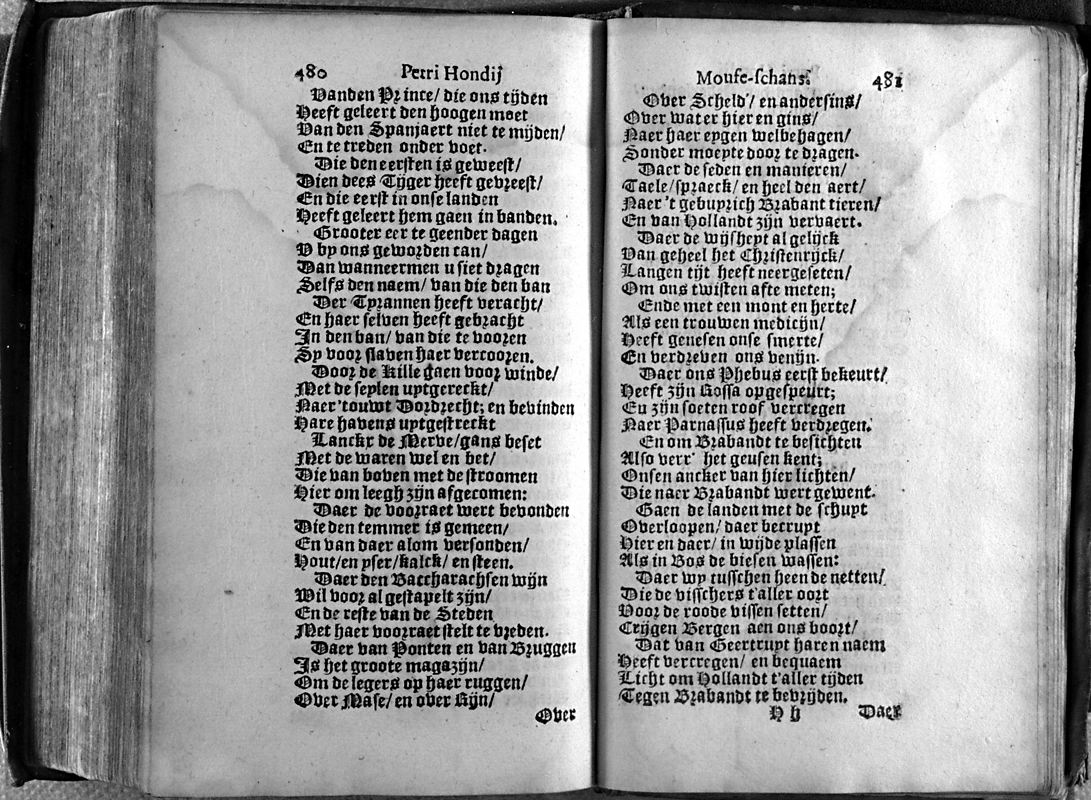 480 Petri Hondij
Vanden Prince/ die ons tijden
Heeft geleert den hoogen moet
Van den Spanjaert niet te mijden/
En te treden onder voet.
Die den eersten is geweest/
Dien dees Tijger heeft gevreest/
En die eerst in onse landen
Heeft geleert hem gaen in banden.
Grooter eer te geender dagen
U by ons geworden can/
Dan wanneermen u siet dragen
Selfs den naem/ van die den ban
Der Tyrannen heeft veracht/
En haer selven heeft gebracht
In den ban/ van die te vooren
Sy voor slaven haer vercooren.
Door de Kille gaen voor winde/
Met de seylen uytgereckt/
Naer 'touwt Dordrecht; en bevinden
Hare havens uytgestreckt
Lanckx de Merve/ gans beset
Met de waren wel en bet/
Die van boven met de stroomen
Hier om leegh zijn afgecomen:
Daer de voorraet wert bevonden
Die den temmer is gemeen/
En van daer alom versonden/
Hout/ en yser/ kalck/ en steen.
Daer den Baccharachsen wijn
Wil voor al gestapelt zijn/
En de reste van de Steden
Met haer voorraet stelt te vreden.
Daer van Ponten en van Bruggen
Is het groote magazijn/
Om de legers op haer ruggen/
Over Mase/ en over Rijn/
Over
Moufe-schans. 481
Over Scheld'/ en andersins/
Over water hier en gins/
Naer haer eygen welbehagen/
Sonder moeyte door te dragen.
Daer de seden en manieren/
Taele/ spraeck/ en heel den aert/
Naer 't gebuyrich Brabant tieren/
En van Hollandt zijn vervaert.
Daer de wijsheyt al gelijck
Van geheel het Christenrijck/
Langen tijt heeft neergeseten/
Om ons twisten afte meten;
Ende met een mont en herte/
Als een trouwen medicijn/
Heeft genesen onse smerte/
En verdreven ons venijn.
Daer ons Phebus eerst bekeurt/
Heeft zijn Rossa opgespeurt;
En zijn soeten roof vercregen
Naer Parnassus heeft verdregen.
En om Brabandt te besichten
Also verr' het geusen kent;
Onsen ancker van hier lichten/
Die naer Brabandt wert gewent.
Gaen de landen met de schuyt
Overloopen/ daer becruyt
Hier en daer/ in wijde plassen
Als in Bos de biesen wassen:
Daer wy tusschen heen de netten/
Die de visschers t'aller oort
Voor de roode vissen setten/
Crijgen Bergen aen ons boort/
Dat van Geertruyt haren naem
Heeft vercregen/ en bequaem
Licht om Hollandt t'aller tijden
Tegen Brabandt te bevrijden.
H h Daer